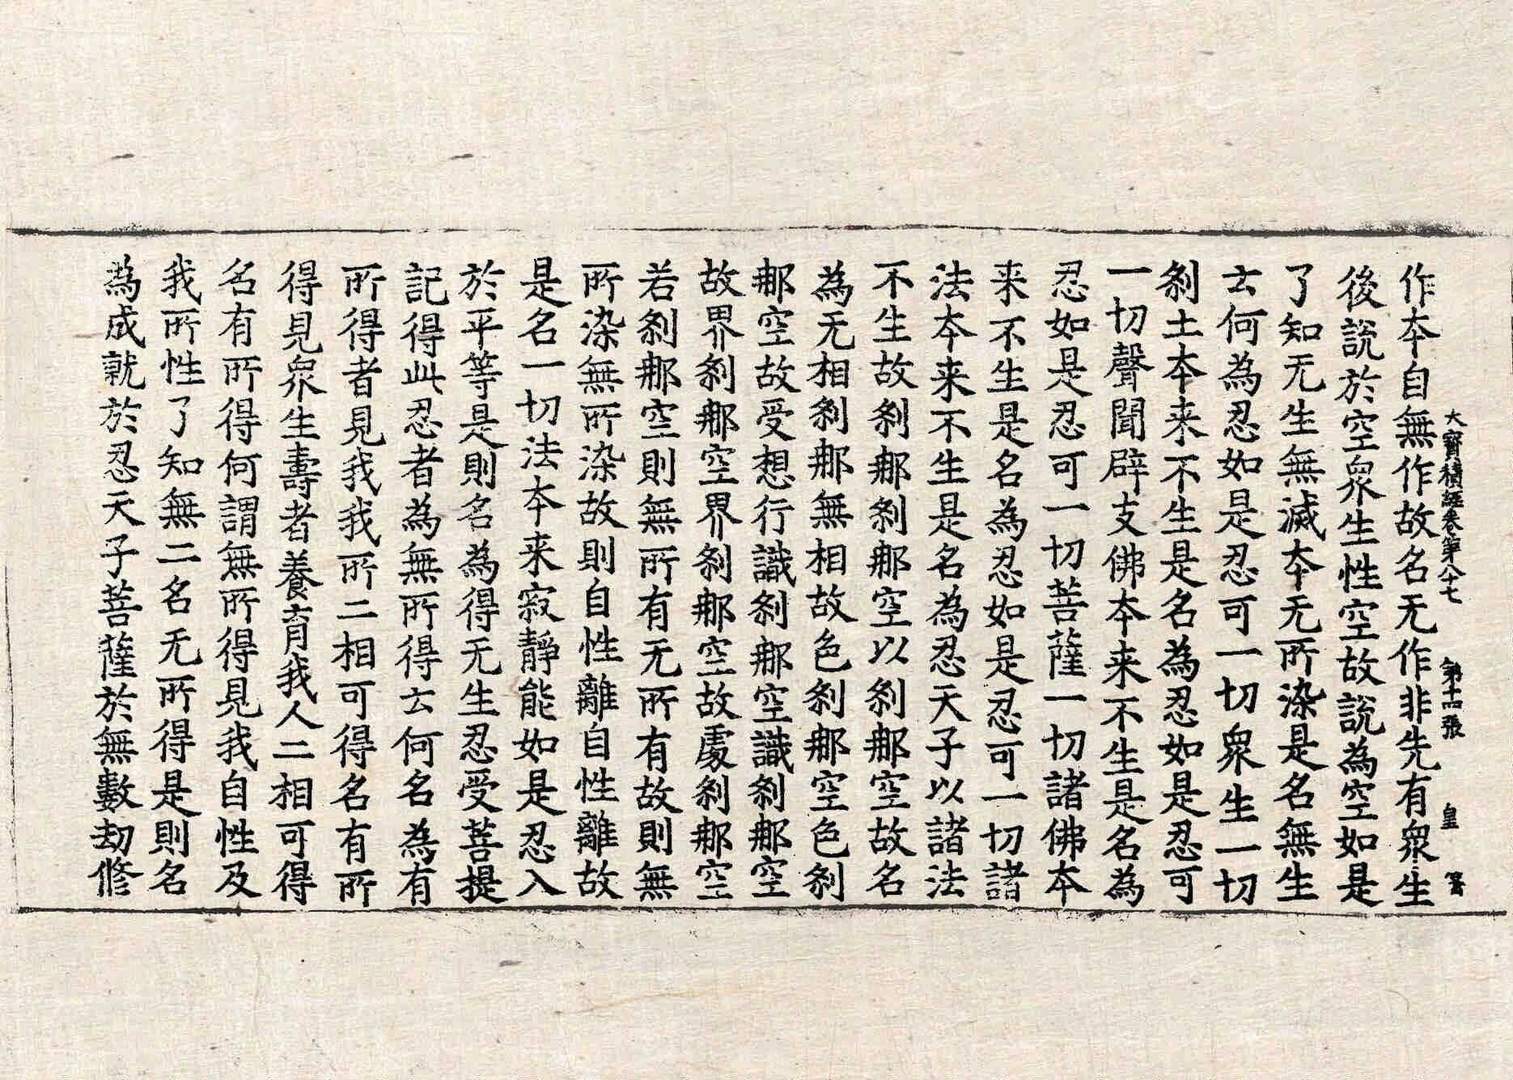 大寶積經卷第八十七　第十四張　皇
作夲自無作故名无作非先有衆生
後說於空衆生性空故說為空如是
了知无生無滅夲无所染是名無生
云何為忍如是忍可一切衆生一切
刹土夲来不生是名為忍如是忍可
一切聲聞辟支佛夲来不生是名為
忍如是忍可一切菩薩一切諸佛夲
来不生是名為忍如是忍可一切諸
法夲来不生是名為忍天子以諸法
不生故刹那刹那空以刹那空故名
為无相刹那無相故色刹那空色刹
那空故受想行識刹那空識刹那空
故界刹那空界刹那空故處刹那空
若刹那空則無所有无所有故則無
所染無所染故則自性離自性離故
是名一切法夲来寂靜能如是忍入
於平等是則名為得无生忍受菩提
記得此忍者為無所得云何名為有
所得者見我我所二相可得名有所
得見衆生壽者養育我人二相可得
名有所得何謂無所得見我自性及
我所性了知無二名无所得是則名
為成就於忍天子菩薩於無數劫修